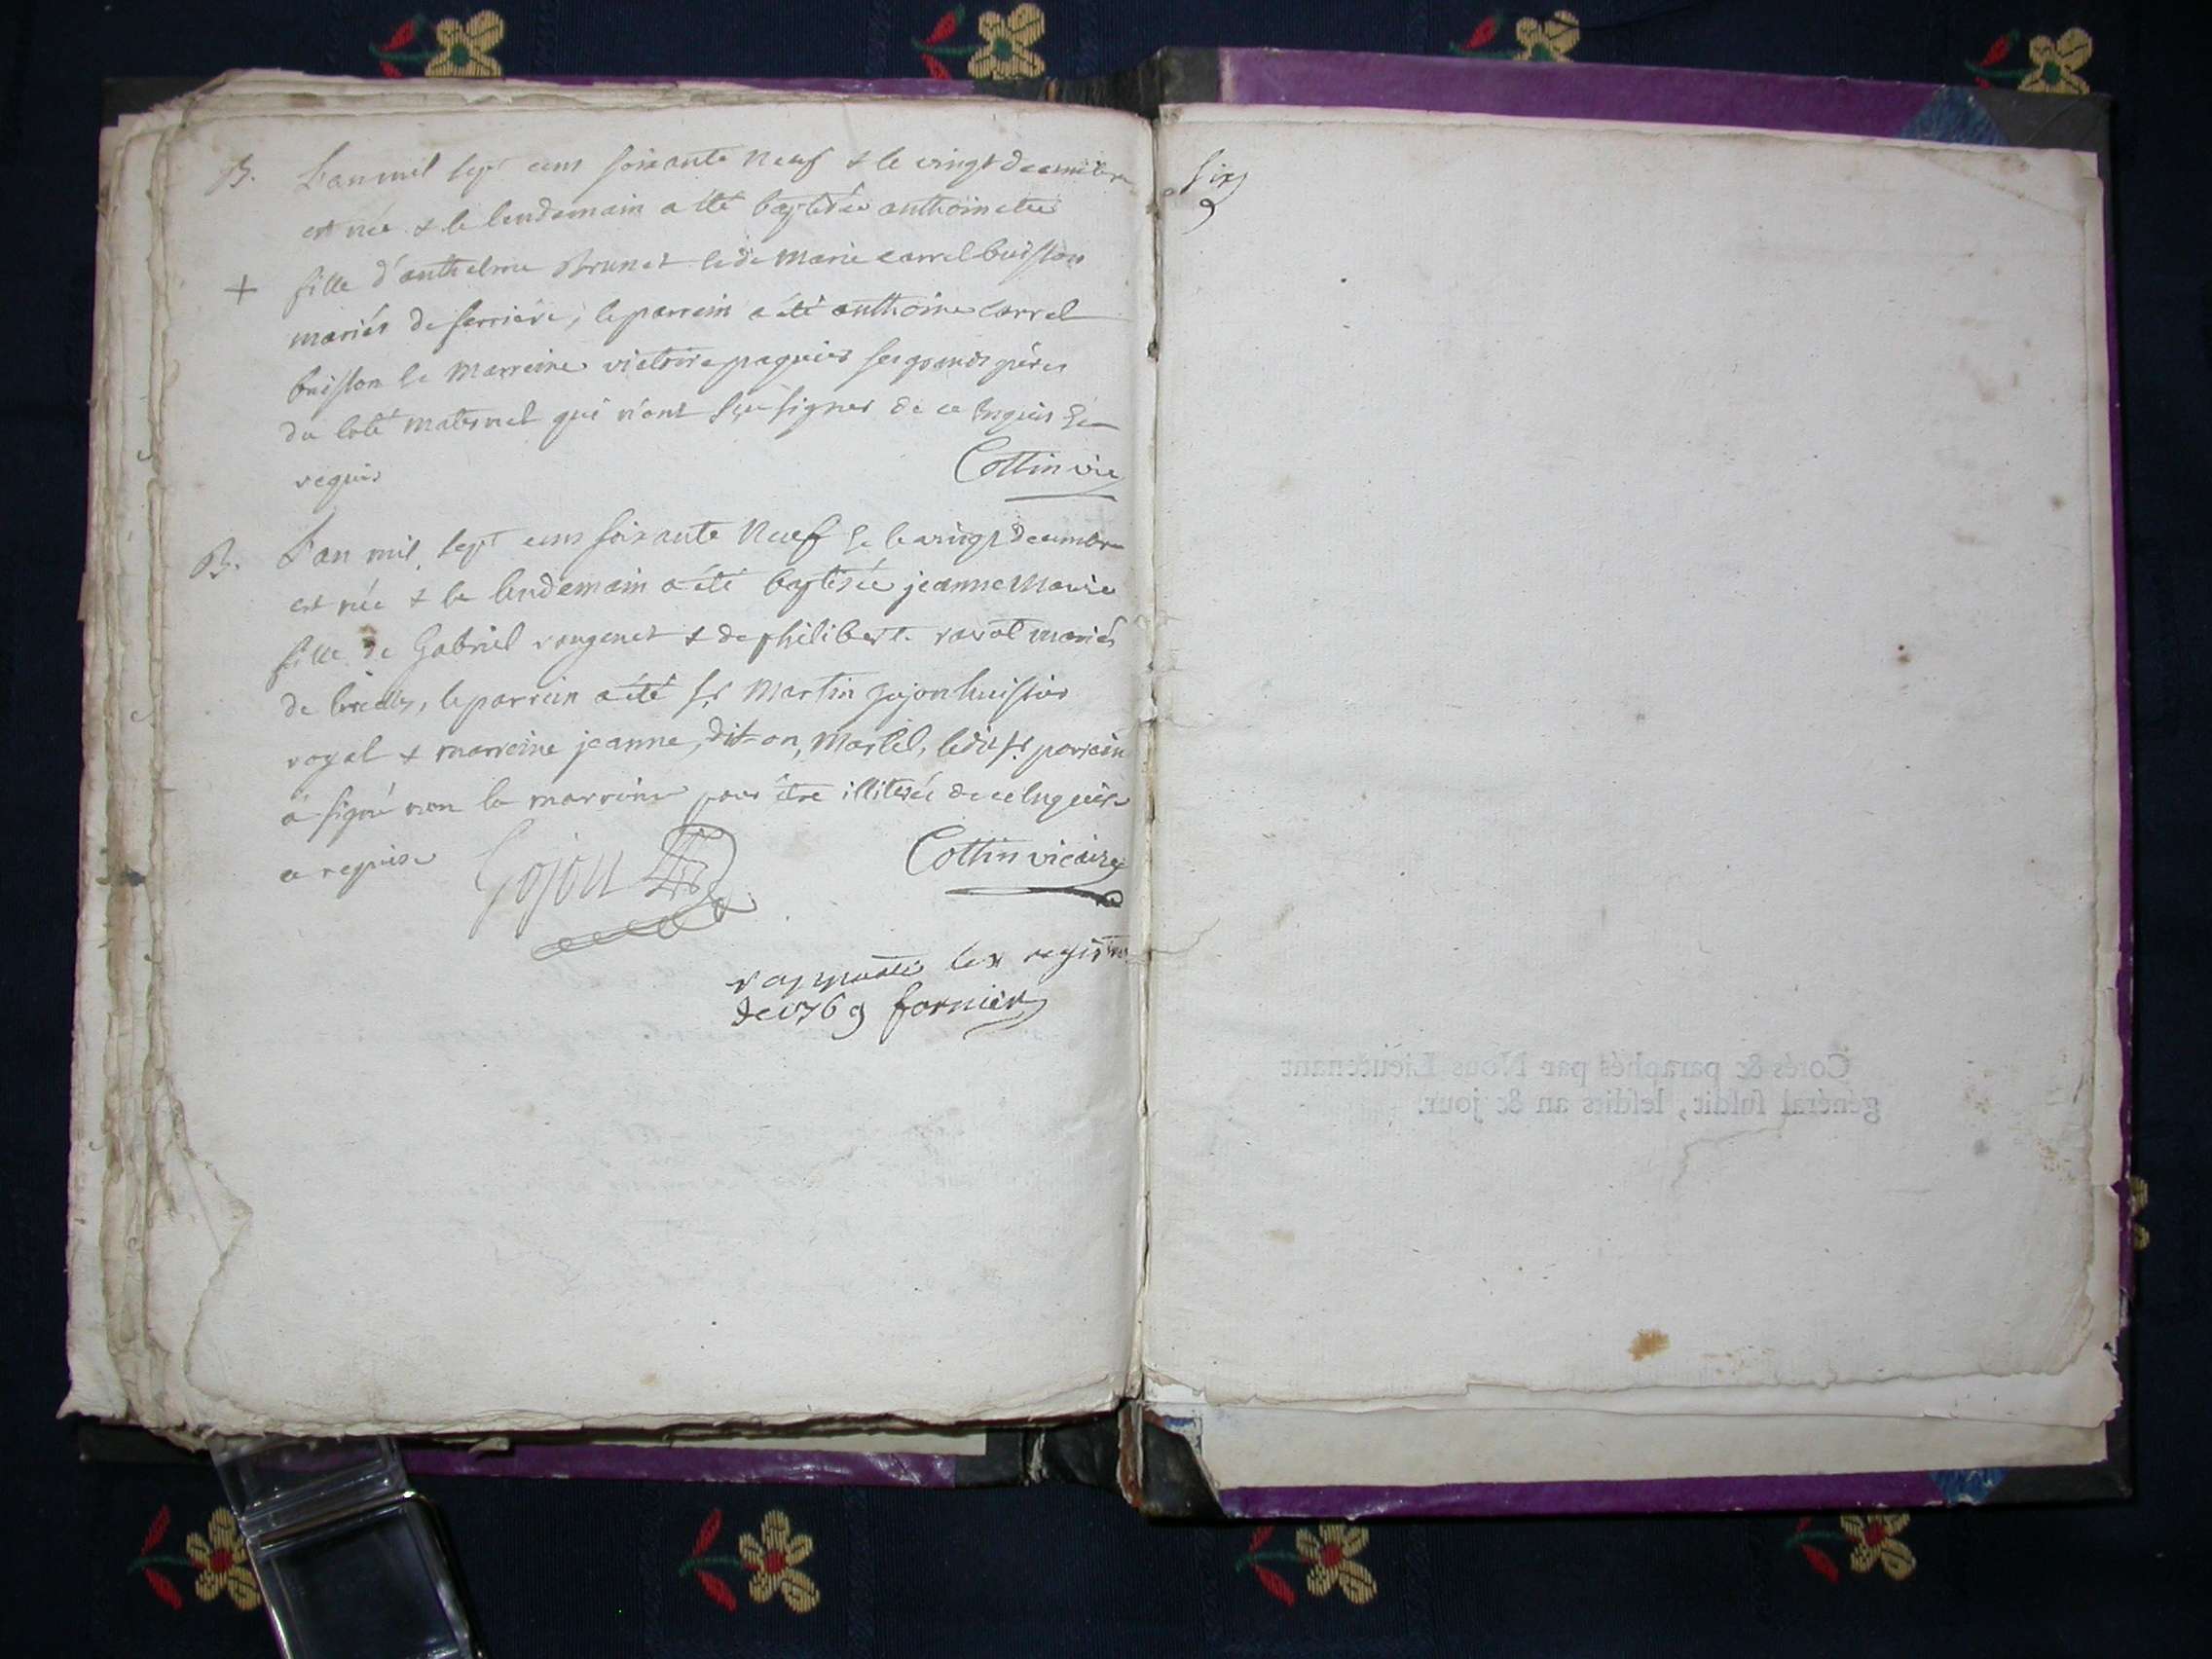 B. L'an mil sept cens soixante neuf & le vingt decembre
est née & le lendemain a été baptisée anthoinette
+ fille d'anthelme Brunet & de Marie carrel buisson
mariés de serriere, le parrein a été anthoine Carrel
buisson & Marreine victoire paquier ses grands pères
du coté maternel qui n'ont sçu signer de ce enquis &
requis
Cottin vic
B. L'an mil sept cens soixante Neuf & le vingt decembre
est née & le lendemain a été baptisée jeanne Marie
fille de Gabriel rougenet & de philiberte ravat mariés
de, le parrein a été sr Martin gojon huissier
royal & marreine jeanne, dit-on, Martel, ledit sr parrein
a signé non la marreine pour être illiterée de ce enquise
& requise
Gojon
Cottin vicaire
les registres
de 1769 fornier
six
Cotés & paraphés par Nous Lieutenant
général susdit, lesdits an & jour.